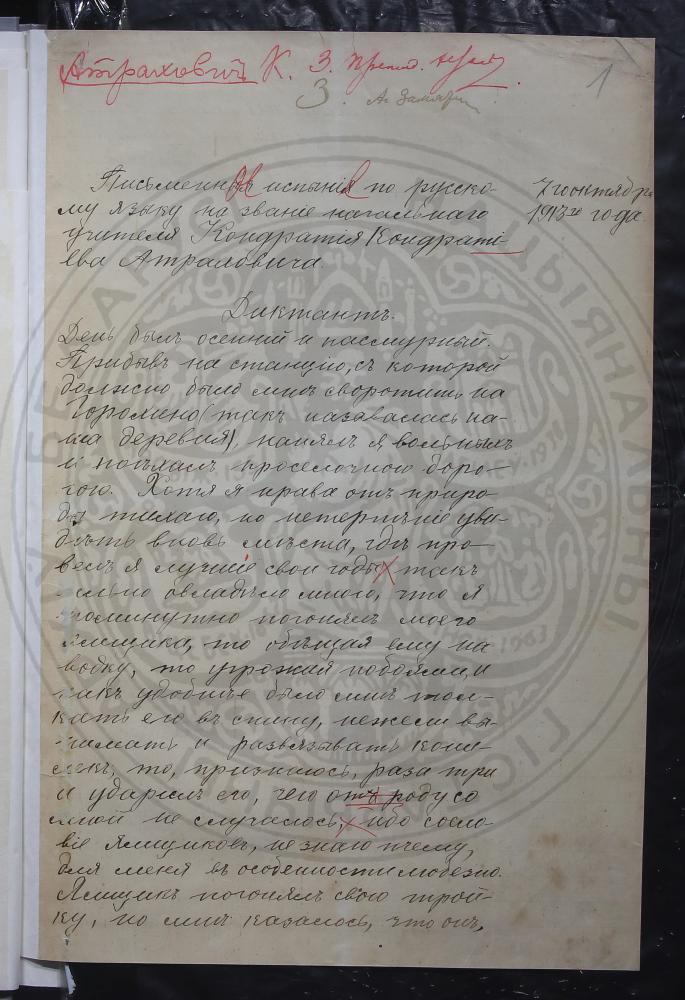 Атрахович К. 3.
3.
1
Письменныя испынія по русско- 7го октября
му языку на званіе начальнаго 1913го года.
учителя Кондратія Кондраті-
ева Атраховича.
Диктантъ.
День былъ осенній и пасмурный.
Прибывъ на станцію, съ которой
должно было мнѣ своротить на
Горюхино (такъ назавалась на-
ша деревня), нанялъ я вольныхъ
и поѣхалъ проселочною доро-
гою. Хотя я нрава отъ приро-
ды тихаго, но нетерпѣніе уви-
дѣть вновь мѣста, гдѣ про-
велъ я лучшіе свои годы, такъ
сильно овладѣло мною, что я
поминутно погонялъ моего
ямщика, то обѣщая ему на
водку, то угрожая побоями, и
какъ удобнѣе было мнѣ тол-
кать его въ спину, нежели вы-
нимать и развязывать коше-
лекъ, то, признаюсь, раза три
и ударилъ его, чего отъ роду со
мной не случалось, ибо сосло-
віе ямщиковъ, не знаю пчему,
для меня въ особенности любезно.
Ямщикъ погонялъ свою трой-
ку, но мнѣ казалось, что онъ,